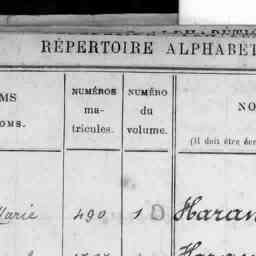 RÉPERTOIRE ALPHABET
MS
OMS.
NUMÉROS
ma-
tricules.
NUMÉRO
du
volume.
NO
(Il doit être
Marie 490 1 D Haran
Haran